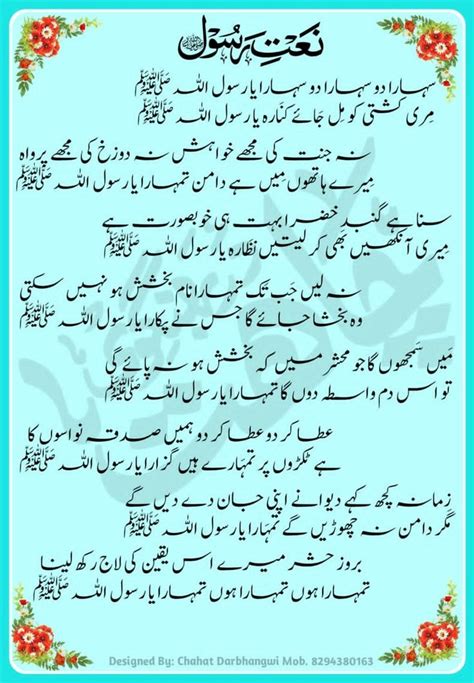 نعتِ رسول ﷺ
سہارا دو سہارا دو سہارا یا رسول اللہ ﷺ
مِری کشتی کو مِل جَائے کنَارہ یا رسول اللہ ﷺ
نہ جنت کی مجھے خواہش نہ دوزخ کی مجھے پرواہ
مِیرے ہاتھوں مِیں ہے دامن تمہارا یا رسول اللہ ﷺ
سنا ہے گنبدِ خضرا بہت ہی خوبصورت ہے
مِیری آنکھیں بھی کر لیتیں نظارہ یا رسول اللہ ﷺ
نہ لیں جَب تک تمہارا نام بخشش ہو نہیں سکتی
وہ بخشا جائے گا جس نے پکارا یا رسول اللہ ﷺ
مَیں سمجھوں گا جو محشر میں کہ بخشش ہو نہ پائے گی
تو اس دم واسطہ دوں گا تمہارا یا رسول اللہ ﷺ
عطا کر دو عطا کر دو ہمیں صدقہ نواسوں کا
ہے ٹکڑوں پر تمہارے ہیں گزارا یا رسول اللہ ﷺ
زمانہ کچھ کہے دیوانے اپنی جان دے دیں گے
مگر دامن نہ چھوڑیں گے تمہارا یا رسول اللہ ﷺ
بروز حشر میرے اس یقین کی لاج رکھ لینا
تمہارا ہوں تمہارا ہوں تمہارا یا رسول اللہ ﷺ
Designed By: Chahat Darbhangwi Mob. 8294380163